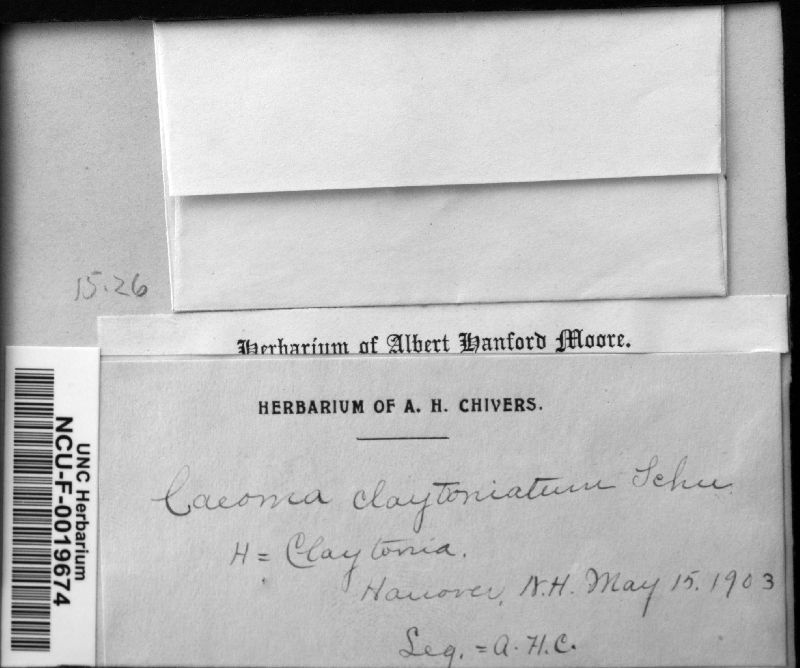 15.26
Herbarium of Albert Hanford Moore.
HERBARIUM OF A. H. CHIVERS.
Caeoma claytoniatum Schw.
H = Claytonia.
Hanover, N.H. May 15. 1903
Leg. = A.H.C.
UNC Herbarium
NCU-F-0019674